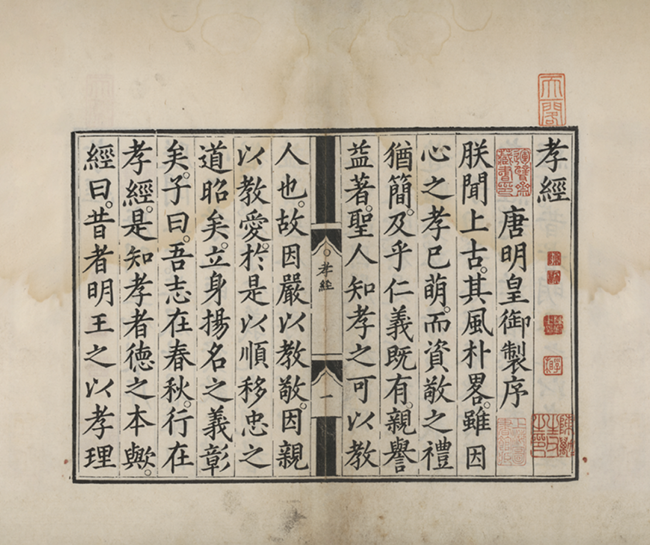 孝經
唐明皇御製序
朕聞上古。其風朴畧。雖因
心之孝已萌。而資敬之禮
猶簡。及乎仁義既有。親譽
益著。聖人知孝之可以教
孝經
一
人也。故因嚴以教敬。因親
以教愛。於是以順移忠之
道昭矣。立身揚名之義彰
矣。子曰。吾志在春秋。行在
孝經。是知孝者德之本歟。
經曰。昔者明王之以孝理